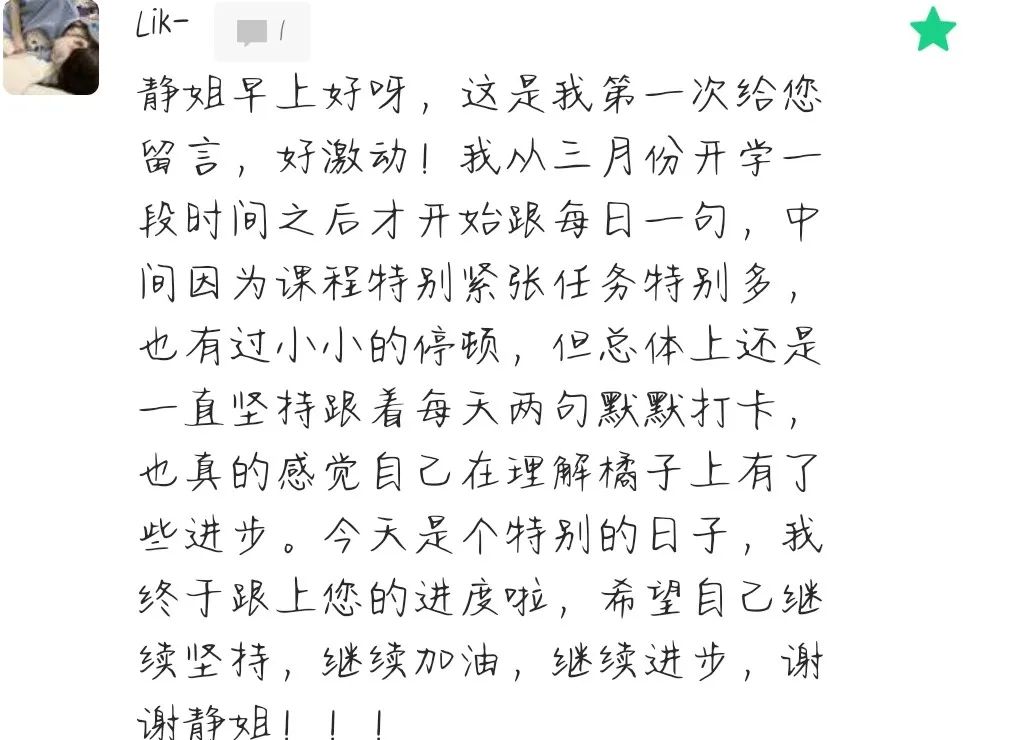 Lik- 1
静姐早上好呀，这是我第一次给您
留言，好激动！我从三月份开学一
段时间之后才开始跟每日一句，中
间因为课程特别紧张任务特别多，
也有过小小的停顿，但总体上还是
一直坚持跟着每天两句默默打卡，
也真的感觉自己在理解橘子上有了
些进步。今天是个特别的日子，我
终于跟上您的进度啦，希望自己继
续坚持，继续加油，继续进步，谢
谢静姐！！！